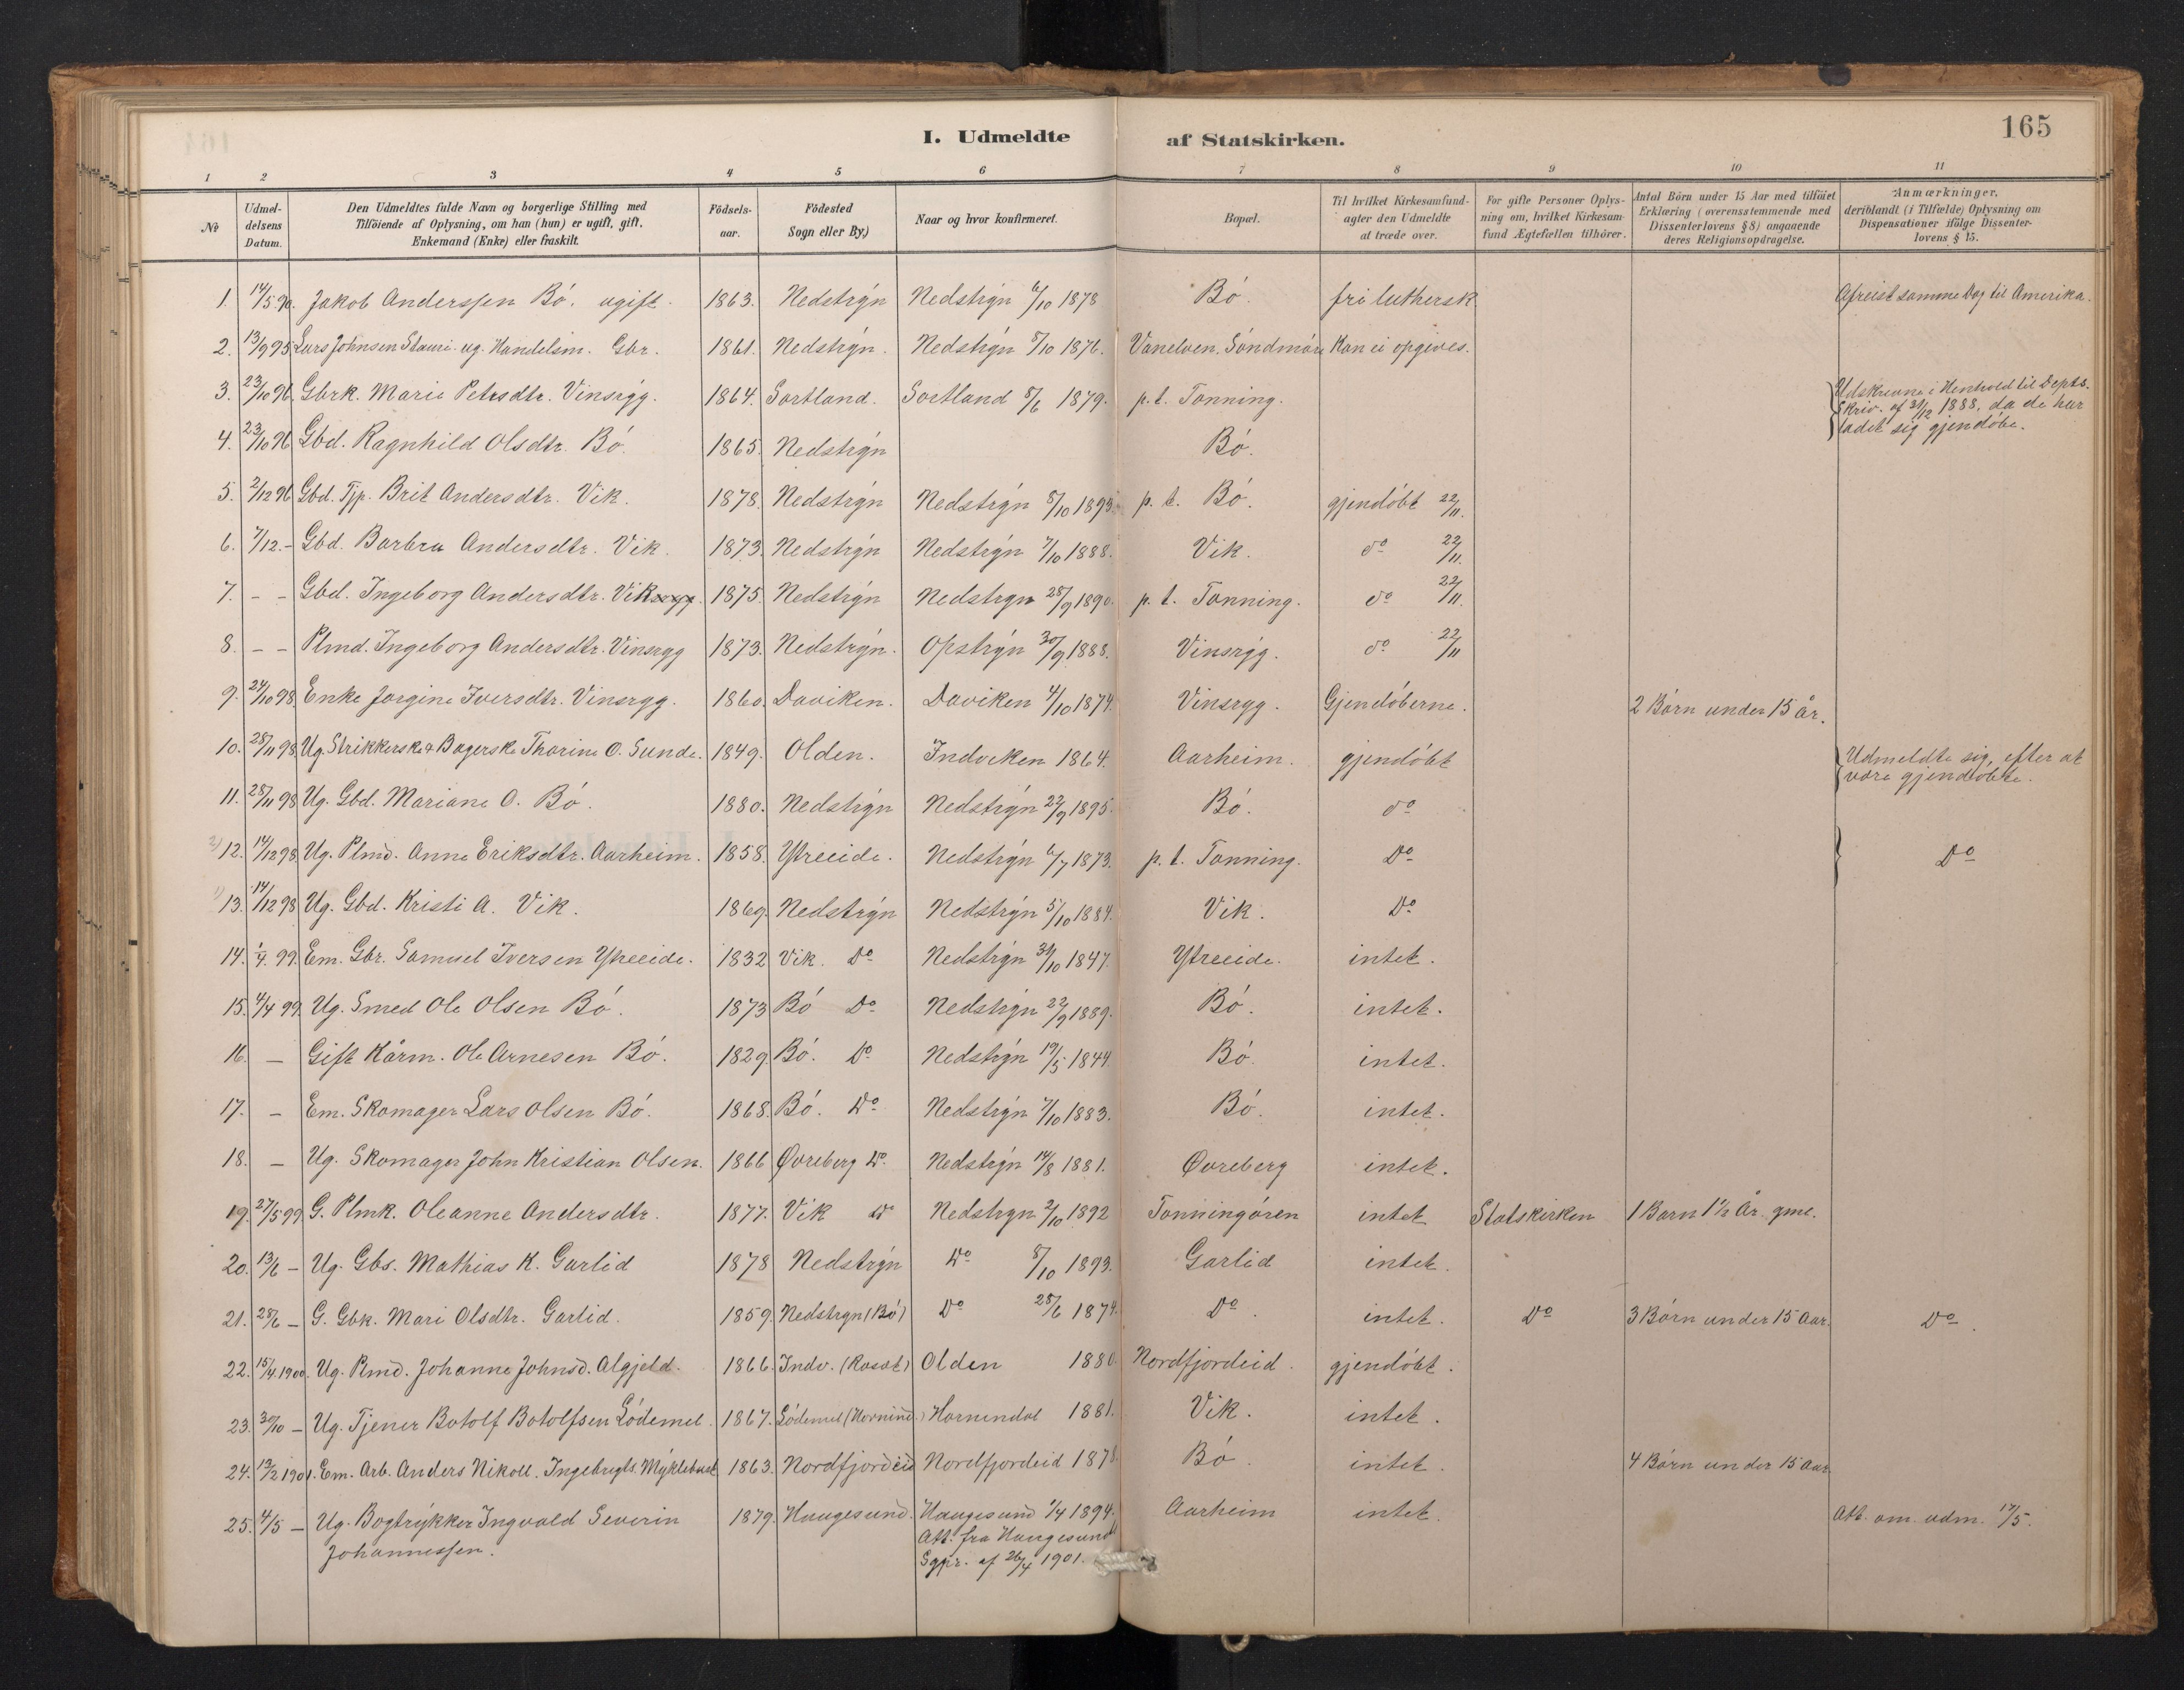 165
I. Udmeldte af Statskirken.
1 2 3 4 5 6 7 8 9 10 11
No
Udmel-
delsens
Datum.
Den Udmeldtes fulde Navn og borgerlige Stilling med
Tilföiende af Oplysning, om han (hun) er ugift, gift,
Enkemand (Enke) eller fraskilt.
Födsels-
aar.
Födested
Sogn eller By)
Naar og hvor konfirmeret.
Bopæl.
Til hvilket Kirkesamfund-
agter den Udmeldte
at træde over.
For gifte Personer Oplys-
ning om, hvilket Kirkesam-
fund Ægtefællen tilhörer.
Antal Börn under 15 Aar med tilföiet
Erklæring (overensstemmende med
Dissenterlovens § 8) angaaende
deres Religionsopdragelse.
Anmærkninger,
deriblandt (i Tilfælde) Oplysning om
Dispensationer ifölge Dissenter-
lovens § 15.
1. 14/5 90. Jakob Anderssen Bó. ugift. 1863. Nedstrýn Nedstrýn 6/10 1878 Bó. fri luthersk Afreist samme Dag til Amerika.
2. 13/9 95 Lars Johnsen Stauri. ug. Handelsm. Gbr. 1861. Nedstrýn. Nedstrýn 8/10 1876. Vanelven, Sóndmóre Kan ei opgives.
3. 23/10 96. Gbrk. Marie Petersdtr. Vinsrýg. 1864. Sortland. Sortland 8/6 1879. p. t. Tonning.
Udskrevne i Henhold til Depts.
Skriv. af 31/12 1888, da de har
ladet sig gjendöbe.
4. 23/10 96 Gbd. Ragnhild Olsdtr. Bó. 1865. Nedstrýn Bó.
5. 2/12 96 Gbd. Tjp. Brit Andersdtr. Vik. 1878. Nedstrýn Nedstrýn 8/10 1893. p. t. Bó. gjendóbt 22/11.
6. 7/12 - Gbd. Barbra Andersdtr. Vik. 1873. Nedstrýn Nedstrýn 7/10 1888. Vik. do 22/11.
7. - - Gbd. Ingeborg Andersdtr. Vik 1875. Nedstrýn Nedstrýn 28/9 1890. p. t. Tonning. do 22/11.
8. - - Plmd. Ingeborg Andersdtr. Vinsryg 1873. Nedstrýn. Opstrýn 30/9 1888. Vinsrýg. do 22/11
9. 24/10 98 Enke Jorgine Iversdtr. Vinsryg. 1860. Daviken. Daviken 4/10 1874. Vinsryg. Gjendóberne. 2 Börn under 15 år.
10. 28/11 98 Ug. Strikkerske & Bagerske Thorine O. Sunde. 1849. Olden. Indviken 1864. Aarheim. gjendóbt
Udmeldte sig, efter at
være gjendóbte.
11. 28/11 98 Ug. Gbd. Mariane O. Bó. 1880. Nedstrýn Nedstrýn 22/9 1895. Bó. do
12. 14/12 98. Ug. Plmd. Anne Eriksdtr. Aarheim. 1858. Ytreeide. Nedstrýn 6/7 1873. p. t. Tonning. Do Do
13. 14/12 98 Ug. Gbd. Kristi A. Vik. 1869. Nedstrýn Nedstrýn 5/10 1884. Vik. Do
14. 1/4. 99. Em. Gbr. Samuel Iversen Ytreeide. 1832 Vik. Do Nedstrýn 31/10 1847. Ytreeide. intet.
15. 4/4 99. Ug. Smed Ole Olsen Bó. 1873 Bó Do Nedstrýn 22/9 1889. Bó. intet.
16. - Gift Kårm. Ole Arnesen Bó. 1829. Bó. Do Nedstrýn 19/5 1844. Bó. intet.
17. - Em. Skomager Lars Olsen Bó. 1868. Bó. Do Nedstrýn 7/10 1883. Bó. intet.
18. - Ug. Skomager John Kristian Olsen. 1866 Øvreberg Do. Nedstrýn 14/8 1881. Øvreberg intet.
19. 27/5 99 G. Plmk. Oleanne Andersdtr. 1877. Vik Do Nedstryn 2/10 1892 Tonningóren intet Statskirken 1 Barn 1 1/2 År gml.
20. 13/6 - Ug. Gbs. Mathias K. Garlid 1878 Nedstrýn Do 8/10 1893. Garlid intet.
21. 28/6 - G. Gbk. Mari Olsdtr. Garlid. 1859. Nedstryn (Bó) Do 28/6 1874. Do. intet. Do 3 Börn under 15 Aar. Do.
22. 15/4 1900. Ug. Plmd. Johanne Johnsd. Algjeld. 1866. Indv. (Roset) Olden 1880. Nordfjordeid. gjendóbt.
23. 30/10 - Ug. Tjener Botolf Botolfsen Lódemel. 1867. Lódemel (Hornind.) Hornindal 1881. Vik. intet.
24. 13/2 1901. Em. Arb. Anders Nikoll. Ingebrigts. Mýklebust 1863. Nordfjordeid Nordfjordeid 1878. Bó. intet. 4 Börn under 15 Aar.
25. 4/5 - Ug. Bogtrýkker Ingvald Severin 1879. Haugesund. Haugesund 1/4 1894. Aarheim intet. Att. om udm. 17/5.
Johannessen. Att. fra Haugesund
Sgpr. af 26/4 1901.